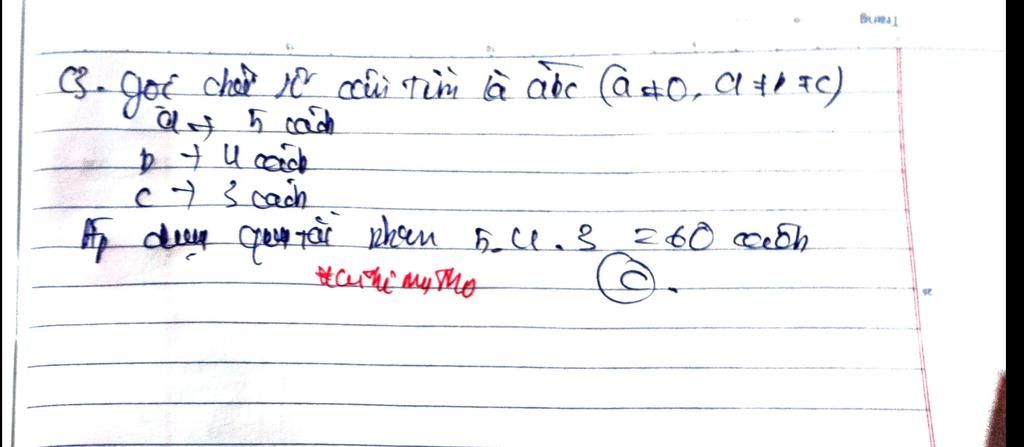 C3. gọi chữ số cần tìm là abc (a ≠ 0, a ≠ b ≠ c)
a → 5 cách
b → 4 cách
c → 3 cách
Áp dụng quy tắc nhân 5.4.3 = 60 cách
C.